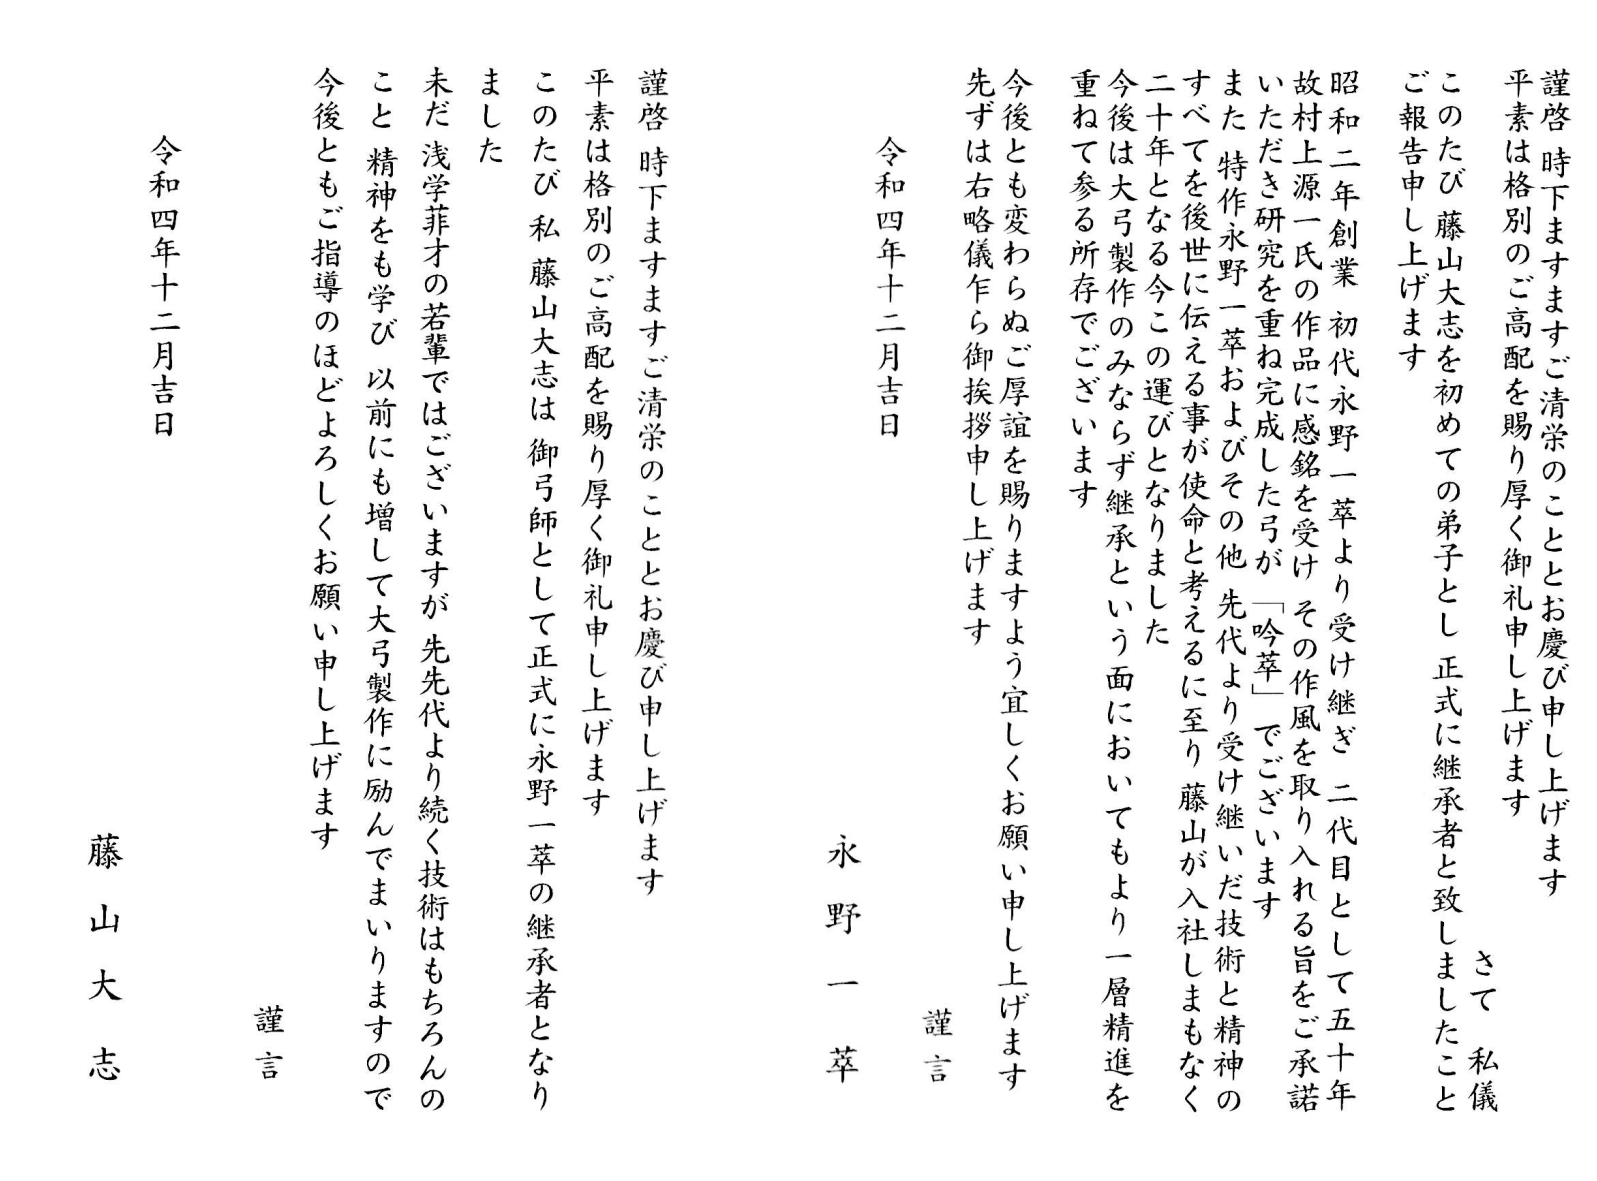 謹啓 時下ますますご清栄のこととお慶び申し上げます
平素は格別のご高配を賜り厚く御礼申し上げます
さて 私儀
このたび 藤山大志を初めての弟子とし 正式に継承者と致しましたこと
ご報告申し上げます
昭和二年創業 初代永野一萃より受け継ぎ 二代目として五十年
故村上源一氏の作品に感銘を受け その作風を取り入れる旨をご承諾
いただき研究を重ね完成した弓が「吟萃」でございます
また 特作永野一萃およびその他 先代より受け継いだ技術と精神の
すべてを後世に伝える事が使命と考えるに至り 藤山が入社しまもなく
二十年となる今この運びとなりました
今後は大弓製作のみならず継承という面においてもより一層精進を
重ねて参る所存でございます
今後とも変わらぬご厚誼を賜りますよう宜しくお願い申し上げます
先ずは右略儀乍ら御挨拶申し上げます
謹言
令和四年十二月吉日
永野一萃
謹啓 時下ますますご清栄のこととお慶び申し上げます
平素は格別のご高配を賜り厚く御礼申し上げます
このたび 私 藤山大志は 御弓師として正式に永野一萃の継承者となり
ました
未だ 浅学菲才の若輩ではございますが 先先代より続く技術はもちろんの
こと 精神をも学び 以前にも増して大弓製作に励んでまいりますので
今後ともご指導のほどよろしくお願い申し上げます
謹言
令和四年十二月吉日
藤山大志